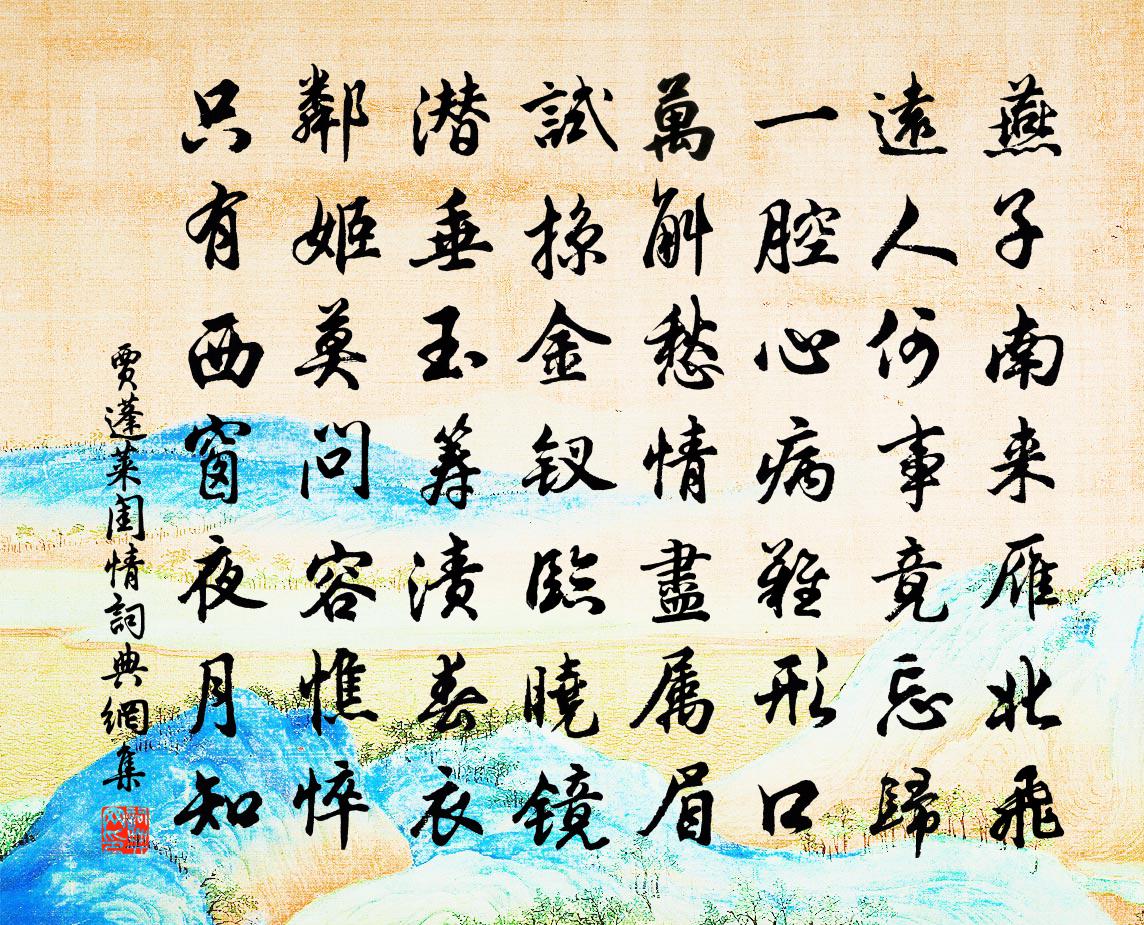 燕子南来雁北飛
遠人何事竟忘歸
一腔心病難形口
萬斛愁情盡属眉
試掠金釵臨曉镜
潜垂玉筹漬春衣
鄰姬莫问容憔悴
只有西窗夜月知
賈蓬莱閨情詞典網集